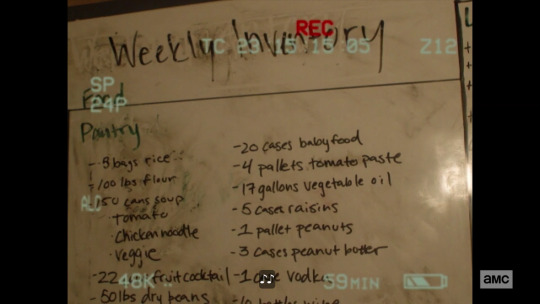 REC
Weekly Inventory
TC 23:15:15:05
Z12
SP
24P
Food
Pantry
- 8 bags rice
- 100 lbs flour
- 50 cans soup
· tomato
· chicken noodle
· veggie
- 22 fruit cocktail
- 50 lbs dry beans
- 20 cases baby food
- 4 pallets tomato paste
- 17 gallons vegetable oil
- 5 cases raisins
- 1 pallet peanuts
- 3 cases peanut butter
- 1 case vodka
48K
59MIN
amc